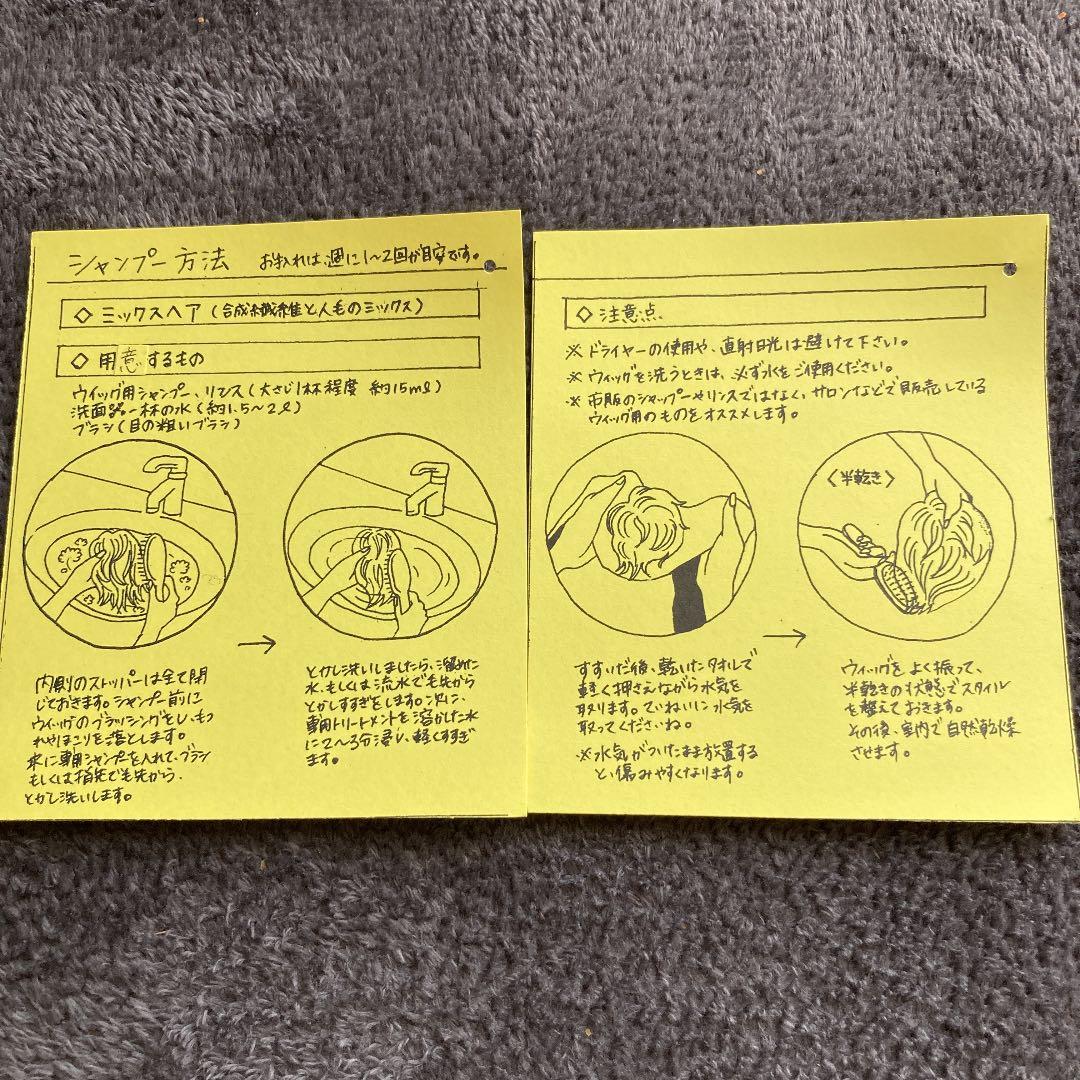 シャンプー方法 お手入れは、週に1〜2回が目安です。
◇ ミックスヘア (合成繊維と人毛のミックス)
◇ 用意するもの
ウィッグ用シャンプー、リンス (大さじ1杯程度 約15ml)
洗面器一杯の水 (約1.5〜2ℓ)
ブラシ (目の粗いブラシ)
内側のストッパーは全て閉
じておきます。シャンプー前に
ウィッグのブラッシングをし、もつ
れやほこりを落とします。
水に専用シャンプーを入れて、ブラシ
もしくは指先で毛先から、
とかし洗いします。
→
とかし洗いしましたら、溜めた
水、もしくは流水で毛先から
とかしすすぎをします。次に、
専用トリートメントを溶かした水
に2〜3分浸し、軽くすすぎ
ます。
◇ 注意点
※ ドライヤーの使用や、直射日光は避けて下さい。
※ ウィッグを洗うときは、必ず水をご使用ください。
※ 市販のシャップーやリンスではなく、サロンなどで販売している
ウィッグ用のものをオススメします。
すすいだ後、乾いたタオルで
軽く押さえながら水気を
取ります。ていねいに水気を
取ってくださいね。
※ 水気がついたまま放置する
と傷みやすくなります。
→
〈半乾き〉
ウィッグをよく振って、
半乾きの状態でスタイル
を整えておきます。
その後、室内で自然乾燥
させます。